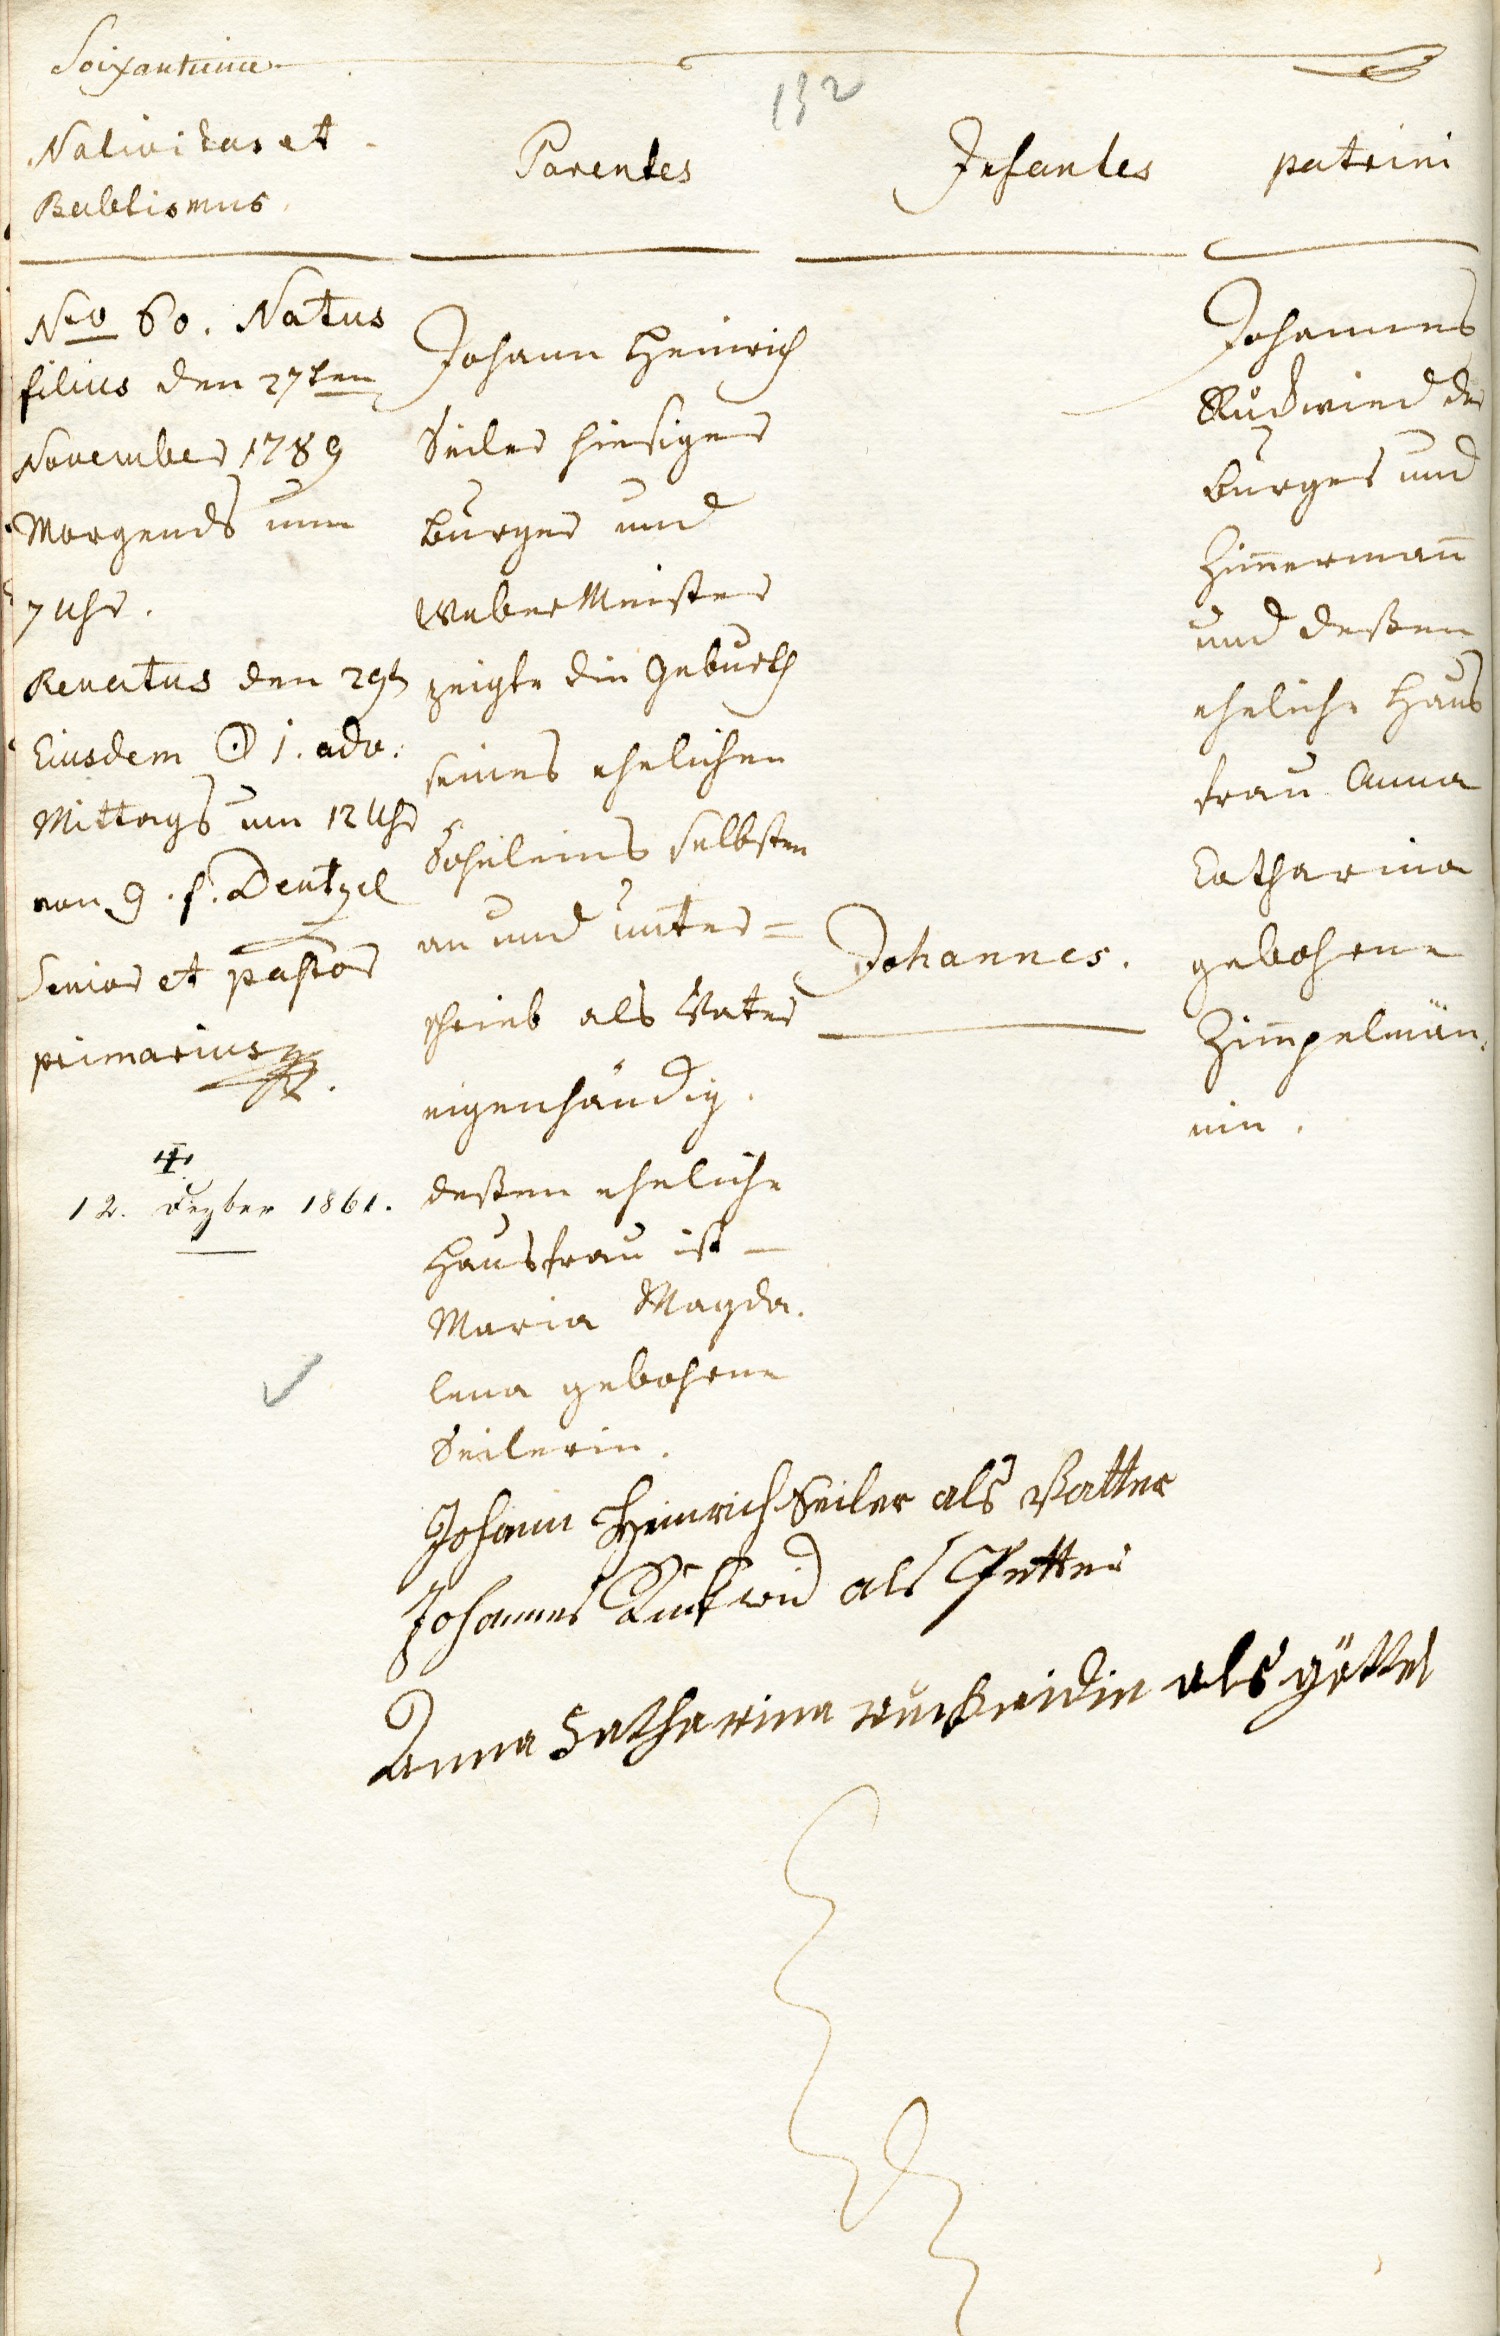 Soixantieme
132
Nativitas et
Babtismus.
Parentes
Infantes
patrini
Nro 60. Natus
filius den 27ten
November 1789
Morgends um
7 Uhr.
Renatus den 29t
Eiusdem ☉ 1. adv:
Mittags um 12 Uhr
von G. f. Dentzel
Senior et pastor
primarius
12. Dezber 1861.
Johann Heinrich
Seiler hiesiger
Burger und
Weber Meister
zeigte die Geburth
seines ehelichen
Söhnleins selbsten
an und unter=
schrieb als Vater
eigenhändig.
deßen eheliche
Hausfrau ist –
Maria Magda.
lena gebohrne
Seilerin.
Johannes.
Johannes
Ruckwied der
Burger und
Zim̄ermann̄
und deßen
eheliche Haus
frau Anna
Catharina
gebohrne
Zim̄pelmän,
nin.
Johann Heinrich Seiler als Vatter
Johannes Ruckwid als Petter
Anna Catharina ruckwidin als göttel